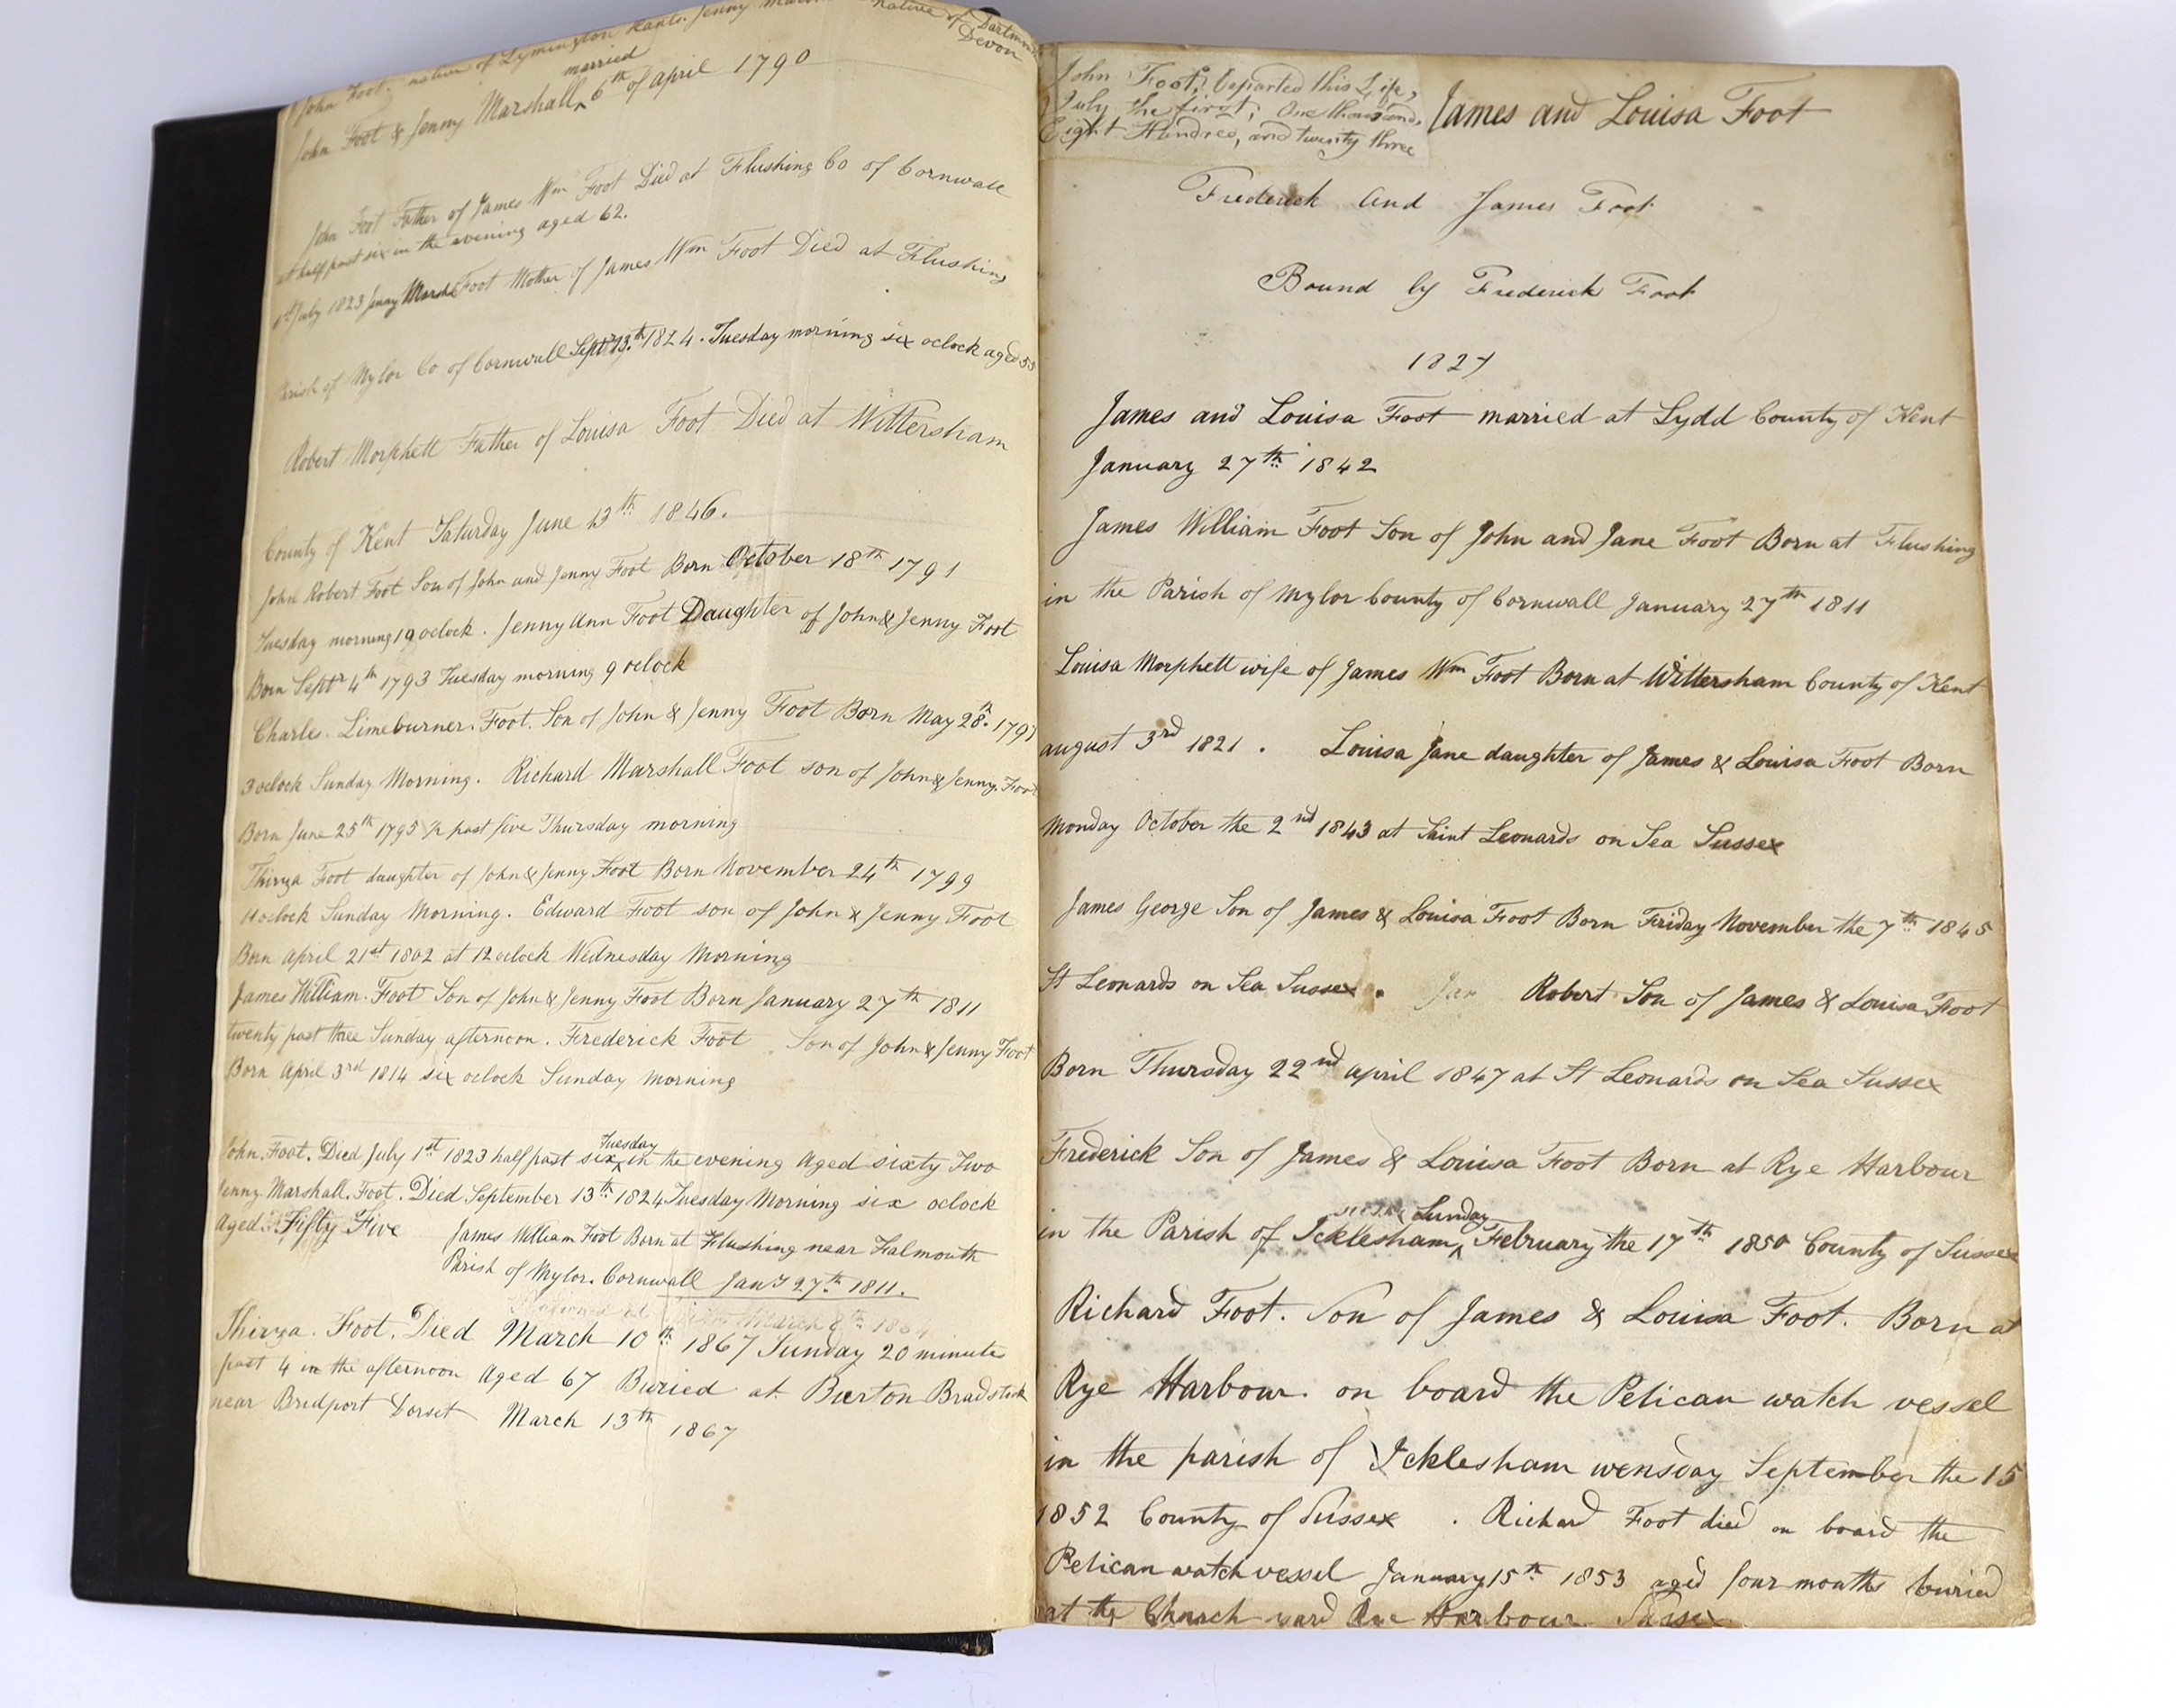 John Foot. native of Lymington Hants. Jenny native of Dartmouth
Devon
married
John Foot & Jenny Marshall ^ 6th of April 1790
John Foot Father of James Wm Foot Died at Flushing Co of Cornwall
at half past six in the evening aged 62.
1st July 1823 Jenny Marshl Foot Mother of James Wm Foot Died at Flushing
Parish of Mylor Co of Cornwall Septr 13th 1824. Tuesday morning six oclock aged 55
Robert Morphett Father of Louisa Foot Died at Wittersham
County of Kent Saturday June 13th 1846.
John Robert Foot Son of John and Jenny Foot Born October 18th 1791
Tuesday morning oclock. Jenny Ann Foot Daughter of John & Jenny Foot
Born Septr 4th 1793 Tuesday morning 9 oclock
Charles. Limeburner. Foot. Son of John & Jenny Foot Born May 28th. 1797
3 oclock Sunday Morning. Richard Marshall Foot son of John & Jenny. Foot
Born June 25th 1795 ½ past five Thursday morning
Thirza Foot daughter of John & Jenny Foot Born November 24th 1799
11 oclock Sunday Morning. Edward Foot son of John & Jenny Foot
Born April 21st 1802 at 12 oclock Wednesday Morning
James William. Foot Son of John & Jenny Foot Born January 27th 1811
twenty past three Sunday afternoon. Frederick Foot Son of John & Jenny Foot
Born April 3rd 1814 six oclock Sunday morning
Tuesday
John. Foot. Died July 1st 1823 half past six ^ in the evening Aged sixty Two
Jenny. Marshall. Foot. Died September 13th 1824 Tuesday Morning six oclock
Aged Fifty Five James William Foot Born at Flushing near Falmouth
Parish of Mylor. Cornwall Jany 27th 1811.
March 8th
Thirza. Foot. Died March 10th 1867 Sunday 20 minutes
past 4 in the afternoon Aged 67 Buried at Burton Bradstock
near Bridport Dorset March 13th 1867
John Foot; Departed this Life,
July the first; One thousand,
Eight Hundred, and twenty three
James and Louisa Foot
Frederick and James Foot
Bound by Frederick Foot
1827
James and Louisa Foot married at Lydd County of Kent
January 27th 1842
James William Foot Son of John and Jane Foot Born at Flushing
in the Parish of Mylor County of Cornwall January 27th 1811
Louisa Morphett wife of James Wm Foot Born at Wittersham County of Kent
august 3rd 1821. Louisa Jane daughter of James & Louisa Foot Born
Monday October the 2nd 1843 at Saint Leonards on Sea Sussex
James George Son of James & Louisa Foot Born Friday November the 7th 1845
St Leonards on Sea Sussex. Jan Robert Son of James & Louisa Foot
Born Thursday 22nd April 1847 at St Leonards on Sea Sussex
Frederick Son of James & Louisa Foot Born at Rye Harbour
Sunday
in the Parish of Icklesham ^ February the 17th 1850 County of Sussex
Richard Foot. Son of James & Louisa Foot. Born at
Rye Harbour. on board the Pelican watch vessel
in the parish of Icklesham wensday September the 15
1852 County of Sussex. Richard Foot died on board the
Pelican watch vessel January 15th 1853 aged four months buried
at the Church yard Rye Harbour. Sussex